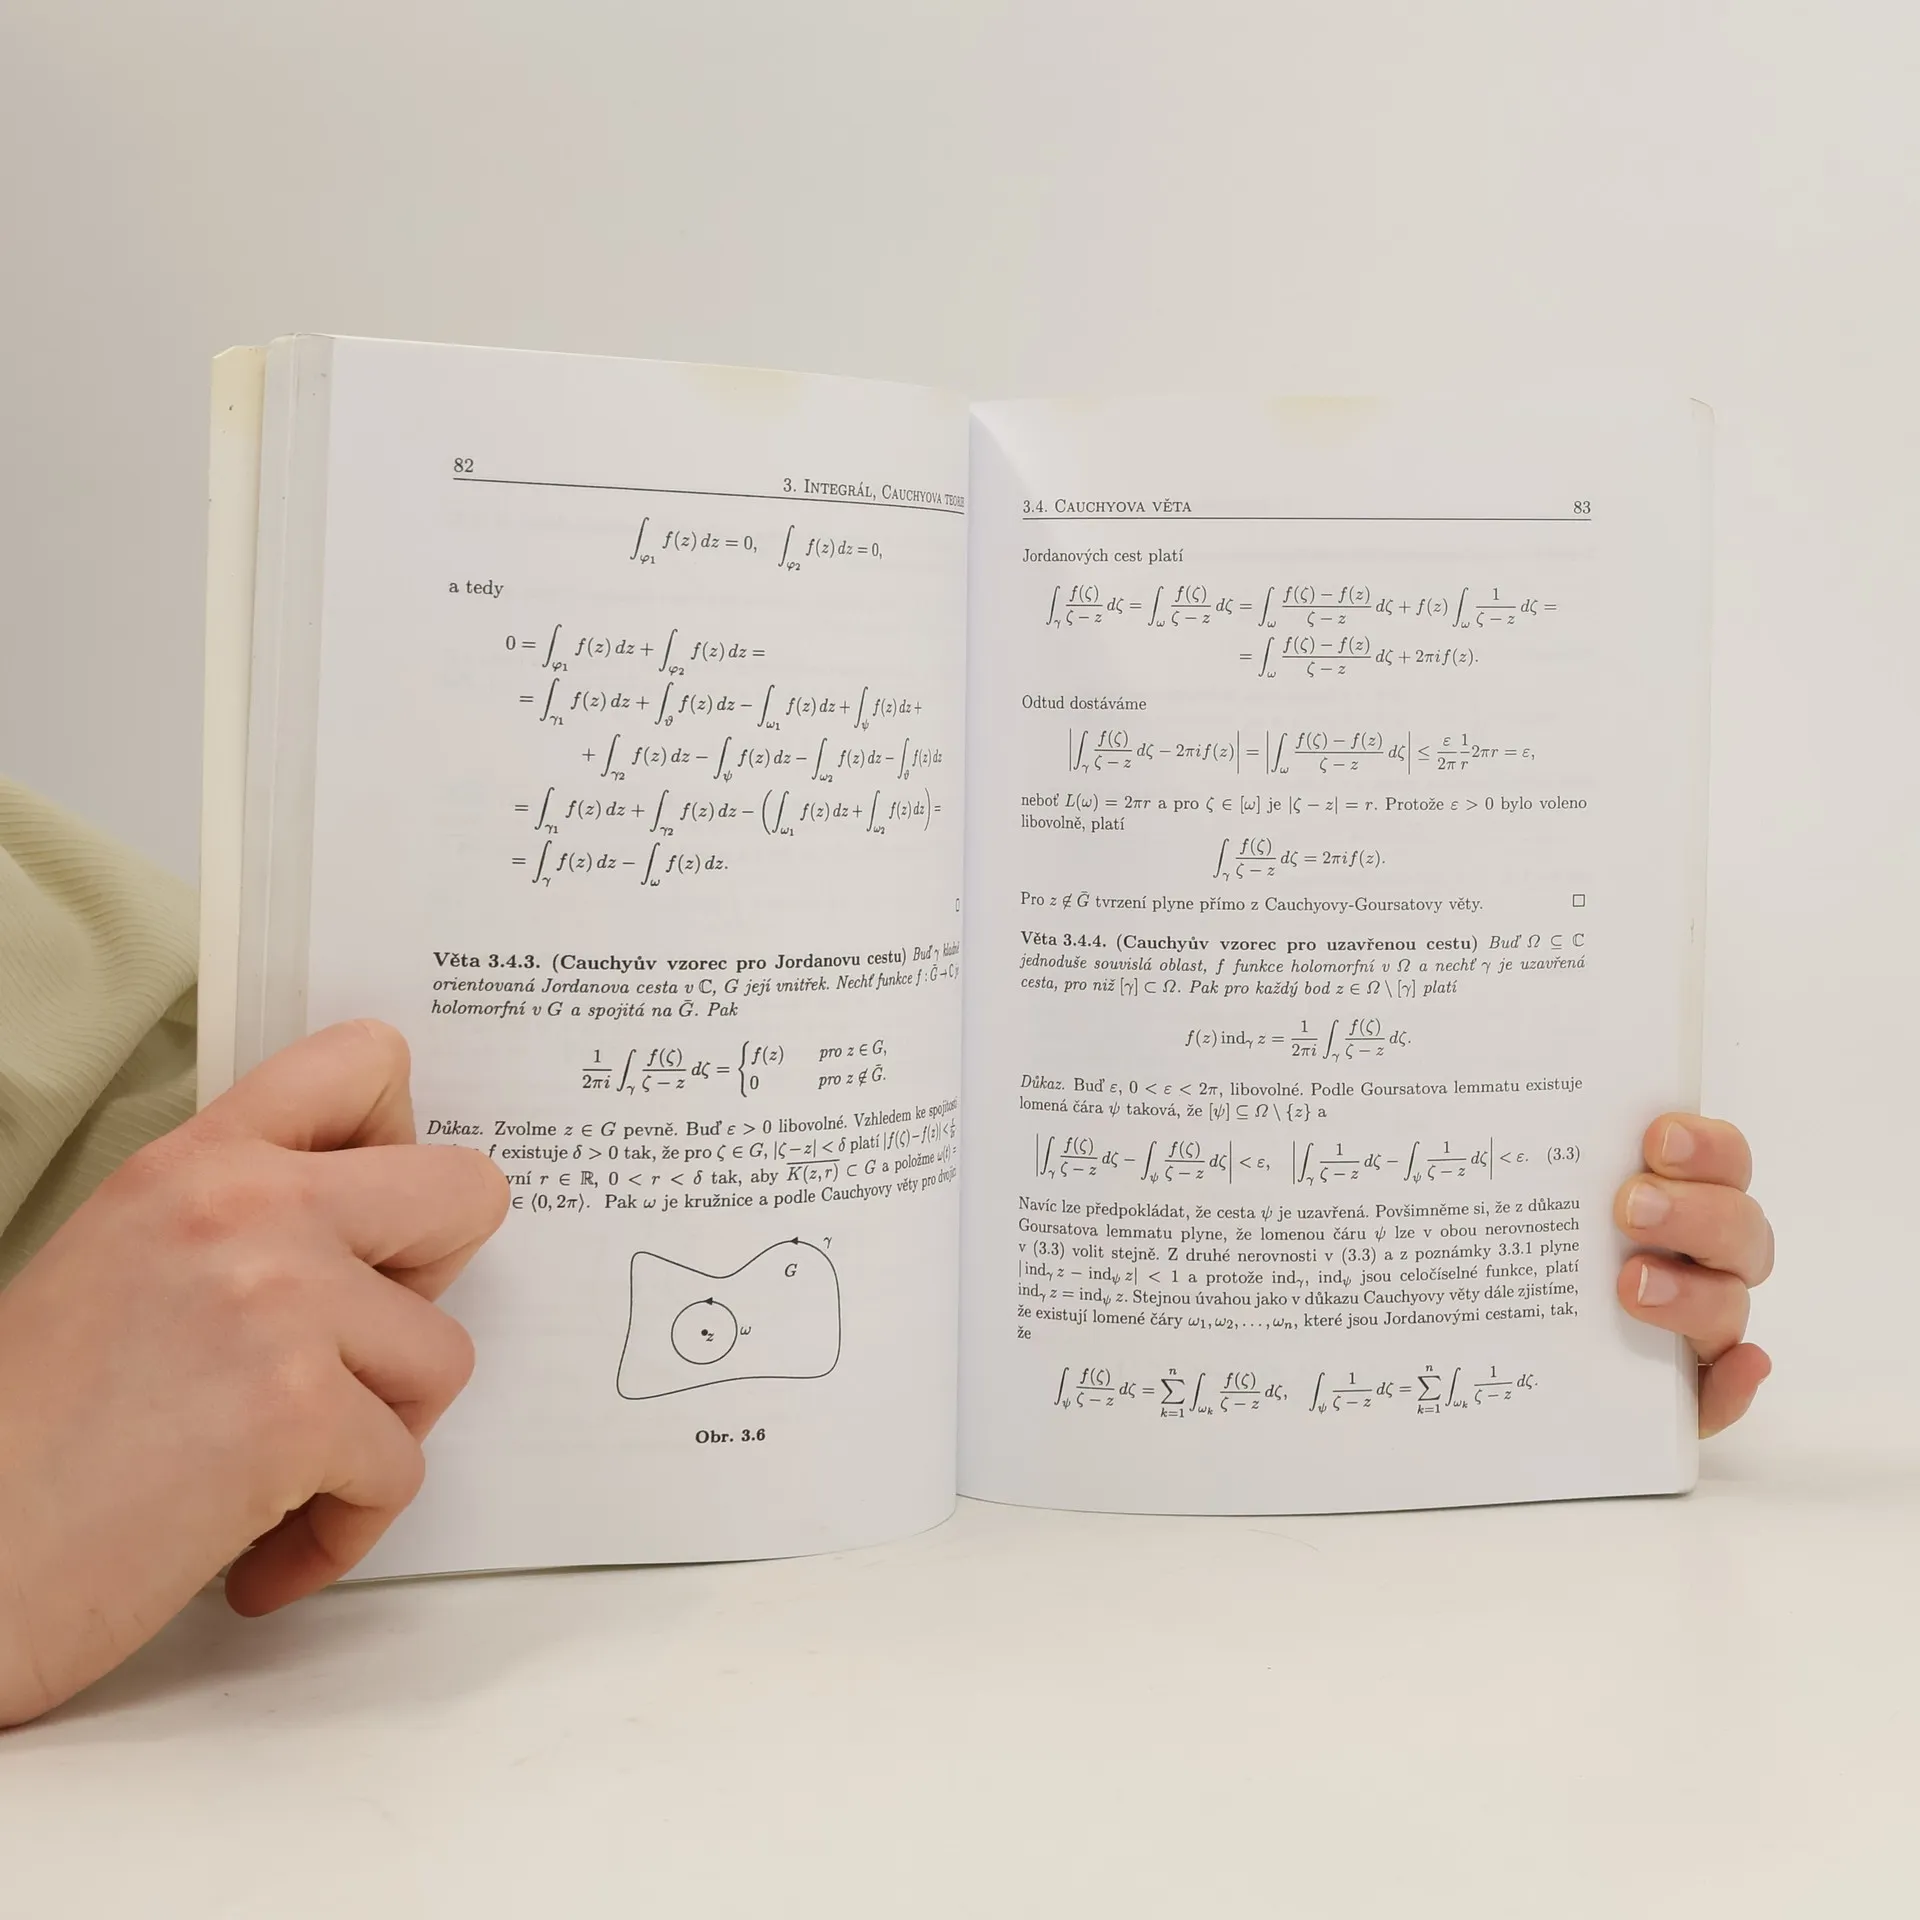 82
3. INTEGRÁL, CAUCHYOVA TEORIE
∫_φ1 f(z) dz = 0, ∫_φ2 f(z) dz = 0,
a tedy
0 = ∫_φ1 f(z) dz + ∫_φ2 f(z) dz =
= ∫_γ1 f(z) dz + ∫_ϑ f(z) dz − ∫_ω1 f(z) dz + ∫_ψ f(z) dz +
+ ∫_γ2 f(z) dz − ∫_ψ f(z) dz − ∫_ω2 f(z) dz − ∫_ϑ f(z) dz
= ∫_γ1 f(z) dz + ∫_γ2 f(z) dz − (∫_ω1 f(z) dz + ∫_ω2 f(z) dz) =
= ∫_γ f(z) dz − ∫_ω f(z) dz.
□
Věta 3.4.3. (Cauchyův vzorec pro Jordanovu cestu) Buď γ
orientovaná Jordanova cesta v ℂ, G její vnitřek. Nechť funkce f : Ḡ → ℂ
holomorfní v G a spojitá na Ḡ. Pak
1/(2πi) ∫_γ f(ζ)/(ζ − z) dζ = { f(z) pro z ∈ G,
0 pro z ∉ Ḡ.
Důkaz. Zvolme z ∈ G pevně. Buď ε > 0 libovolné. Vzhledem ke spojitosti
f existuje δ > 0 tak, že pro ζ ∈ G, |ζ − z| < δ platí |f(ζ) − f(z)| <
r ∈ ℝ, 0 < r < δ tak, aby K(z, r) ⊂ G a položme ω(t) =
∈ ⟨0, 2π⟩. Pak ω je kružnice a podle Cauchyovy věty pro
γ
G
ω
z
Obr. 3.6
3.4. CAUCHYOVA VĚTA 83
Jordanových cest platí
∫_γ f(ζ)/(ζ − z) dζ = ∫_ω f(ζ)/(ζ − z) dζ = ∫_ω (f(ζ) − f(z))/(ζ − z) dζ + f(z) ∫_ω 1/(ζ − z) dζ =
= ∫_ω (f(ζ) − f(z))/(ζ − z) dζ + 2πif(z).
Odtud dostáváme
|∫_γ f(ζ)/(ζ − z) dζ − 2πif(z)| = |∫_ω (f(ζ) − f(z))/(ζ − z) dζ| ≤ ε/2π 1/r 2πr = ε,
neboť L(ω) = 2πr a pro ζ ∈ [ω] je |ζ − z| = r. Protože ε > 0 bylo voleno
libovolně, platí
∫_γ f(ζ)/(ζ − z) dζ = 2πif(z).
Pro z ∉ Ḡ tvrzení plyne přímo z Cauchyovy-Goursatovy věty. □
Věta 3.4.4. (Cauchyův vzorec pro uzavřenou cestu) Buď Ω ⊆ ℂ
jednoduše souvislá oblast, f funkce holomorfní v Ω a nechť γ je uzavřená
cesta, pro niž [γ] ⊂ Ω. Pak pro každý bod z ∈ Ω \ [γ] platí
f(z) ind_γ z = 1/(2πi) ∫_γ f(ζ)/(ζ − z) dζ.
Důkaz. Buď ε, 0 < ε < 2π, libovolné. Podle Goursatova lemmatu existuje
lomená čára ψ taková, že [ψ] ⊆ Ω \ {z} a
|∫_γ f(ζ)/(ζ − z) dζ − ∫_ψ f(ζ)/(ζ − z) dζ| < ε, |∫_γ 1/(ζ − z) dζ − ∫_ψ 1/(ζ − z) dζ| < ε. (3.3)
Navíc lze předpokládat, že cesta ψ je uzavřená. Povšimněme si, že z důkazu
Goursatova lemmatu plyne, že lomenou čáru ψ lze v obou nerovnostech
v (3.3) volit stejně. Z druhé nerovnosti v (3.3) a z poznámky 3.3.1 plyne
|ind_γ z − ind_ψ z| < 1 a protože ind_γ, ind_ψ jsou celočíselné funkce, platí
ind_γ z = ind_ψ z. Stejnou úvahou jako v důkazu Cauchyovy věty dále zjistíme,
že existují lomené čáry ω₁, ω₂, . . . , ωₙ, které jsou Jordanovými cestami, tak,
že
∫_ψ f(ζ)/(ζ − z) dζ = ∑_{k=1}^n ∫_ωk f(ζ)/(ζ − z) dζ, ∫_ψ 1/(ζ − z) dζ = ∑_{k=1}^n ∫_ωk 1/(ζ − z) dζ.